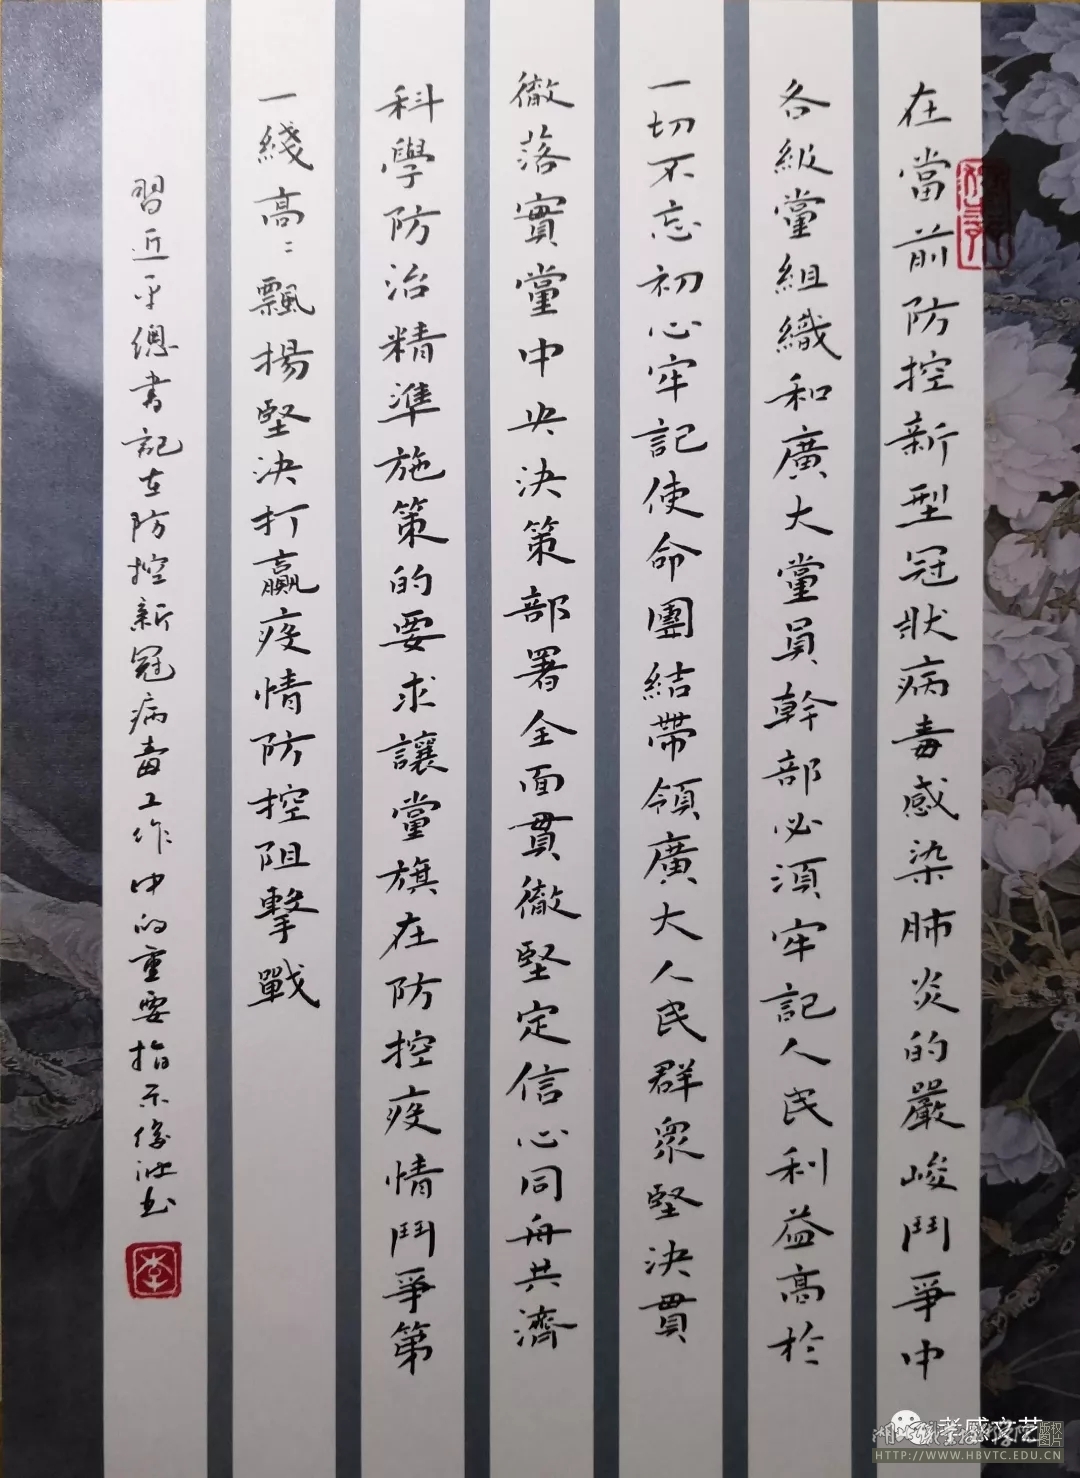 在當前防控新型冠狀病毒感染肺炎的嚴峻鬥爭中
各級黨組織和廣大黨員幹部必須牢記人民利益高於
一切不忘初心牢記使命團結帶領廣大人民群眾堅決貫
徹落實黨中央決策部署全面貫徹堅定信心同舟共濟
科學防治精準施策的要求讓黨旗在防控疫情鬥爭第
一綫高〻飄揚堅決打贏疫情防控阻擊戰
習近平總書記在防控新冠病毒工作中的重要指示
孝感文艺
版权图片
HTTP://WWW.HBVTC.EDU.CN